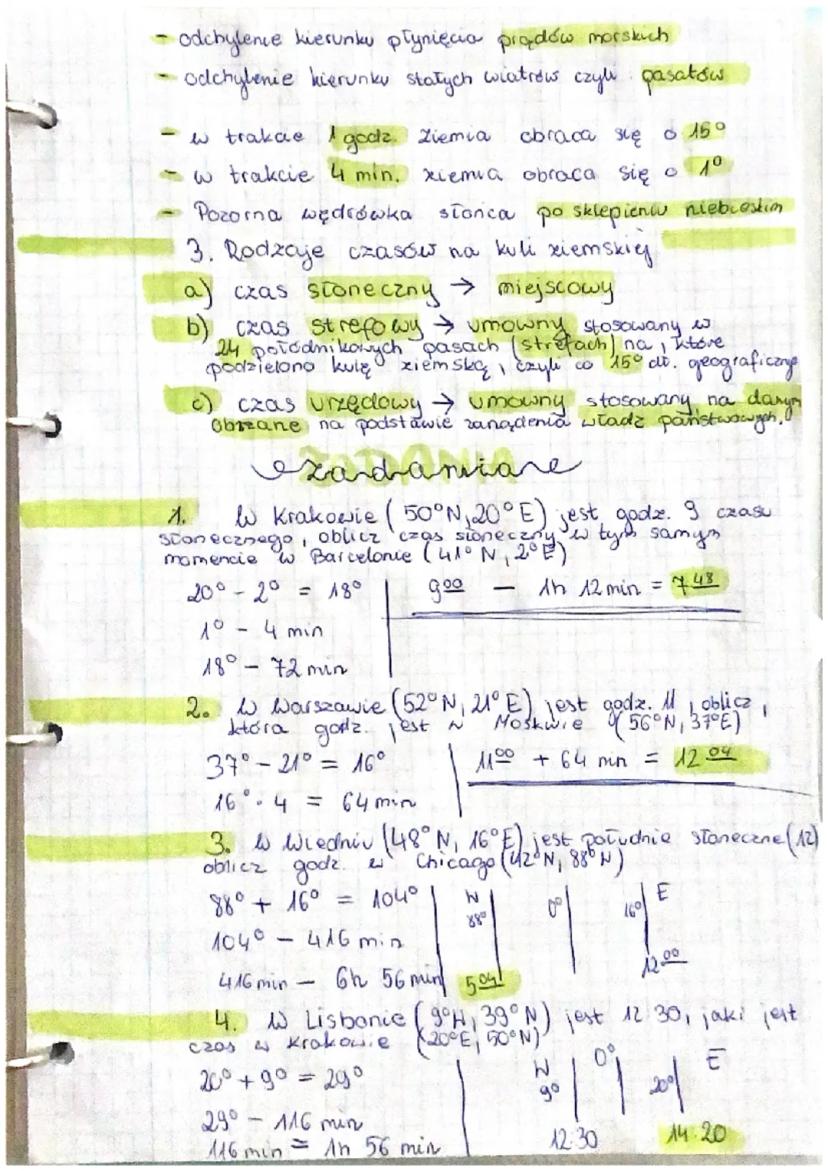 - odchylenie kierunku płynięcia prądów morskich
- odchylenie kierunku stałych wiatrów czyli pasatów
- w trakcie 1 godz. Ziemia obraca się o 15°
- w trakcie 4 min. ziemia obraca się o 1°
- Pozorna wędrówka słońca po sklepieniu niebieskim
3. Rodzaje czasów na kuli ziemskiej
a) czas słoneczny → miejscowy
b) czas strefowy → umowny stosowany w
24 południkowych pasach (strefach) na, które
podzielono kulę ziemską, czyli co 15° dł. geograficznej
c) czas urzędowy → umowny stosowany na danym
obszarze na podstawie zarządzenia władz państwowych.
zadania
1. W Krakowie (50°N, 20°E) jest godz. 9 czasu
słonecznego, oblicz czas słoneczny w tym samym
momencie w Barcelonie (41°N, 2°E)
20° - 2° = 18° 9 00 - 1h 12 min = 7 48
1° - 4 min
18° - 72 min
2. W Warszawie (52°N, 21°E) jest godz. 11, oblicz,
która godz. jest w Moskwie (56°N, 37°E)
37° - 21° = 16° 11 00 + 64 min = 12 04
16° · 4 = 64 min
3. W Wiedniu (48°N, 16°E) jest południe słoneczne (12)
oblicz godz. w Chicago (42°N, 88°N)
88° + 16° = 104° W 88° 0° 16° E
104° - 416 min
416 min - 6h 56 min 5 04 12 00
4. W Lisbonie (9°W, 39°N) jest 12:30, jaki jest
czas w Krakowie (20°E, 50°N)
20° + 9° = 29° W 9° 0° 20° E
29° - 116 min
116 min = 1h 56 min 12:30 14:20